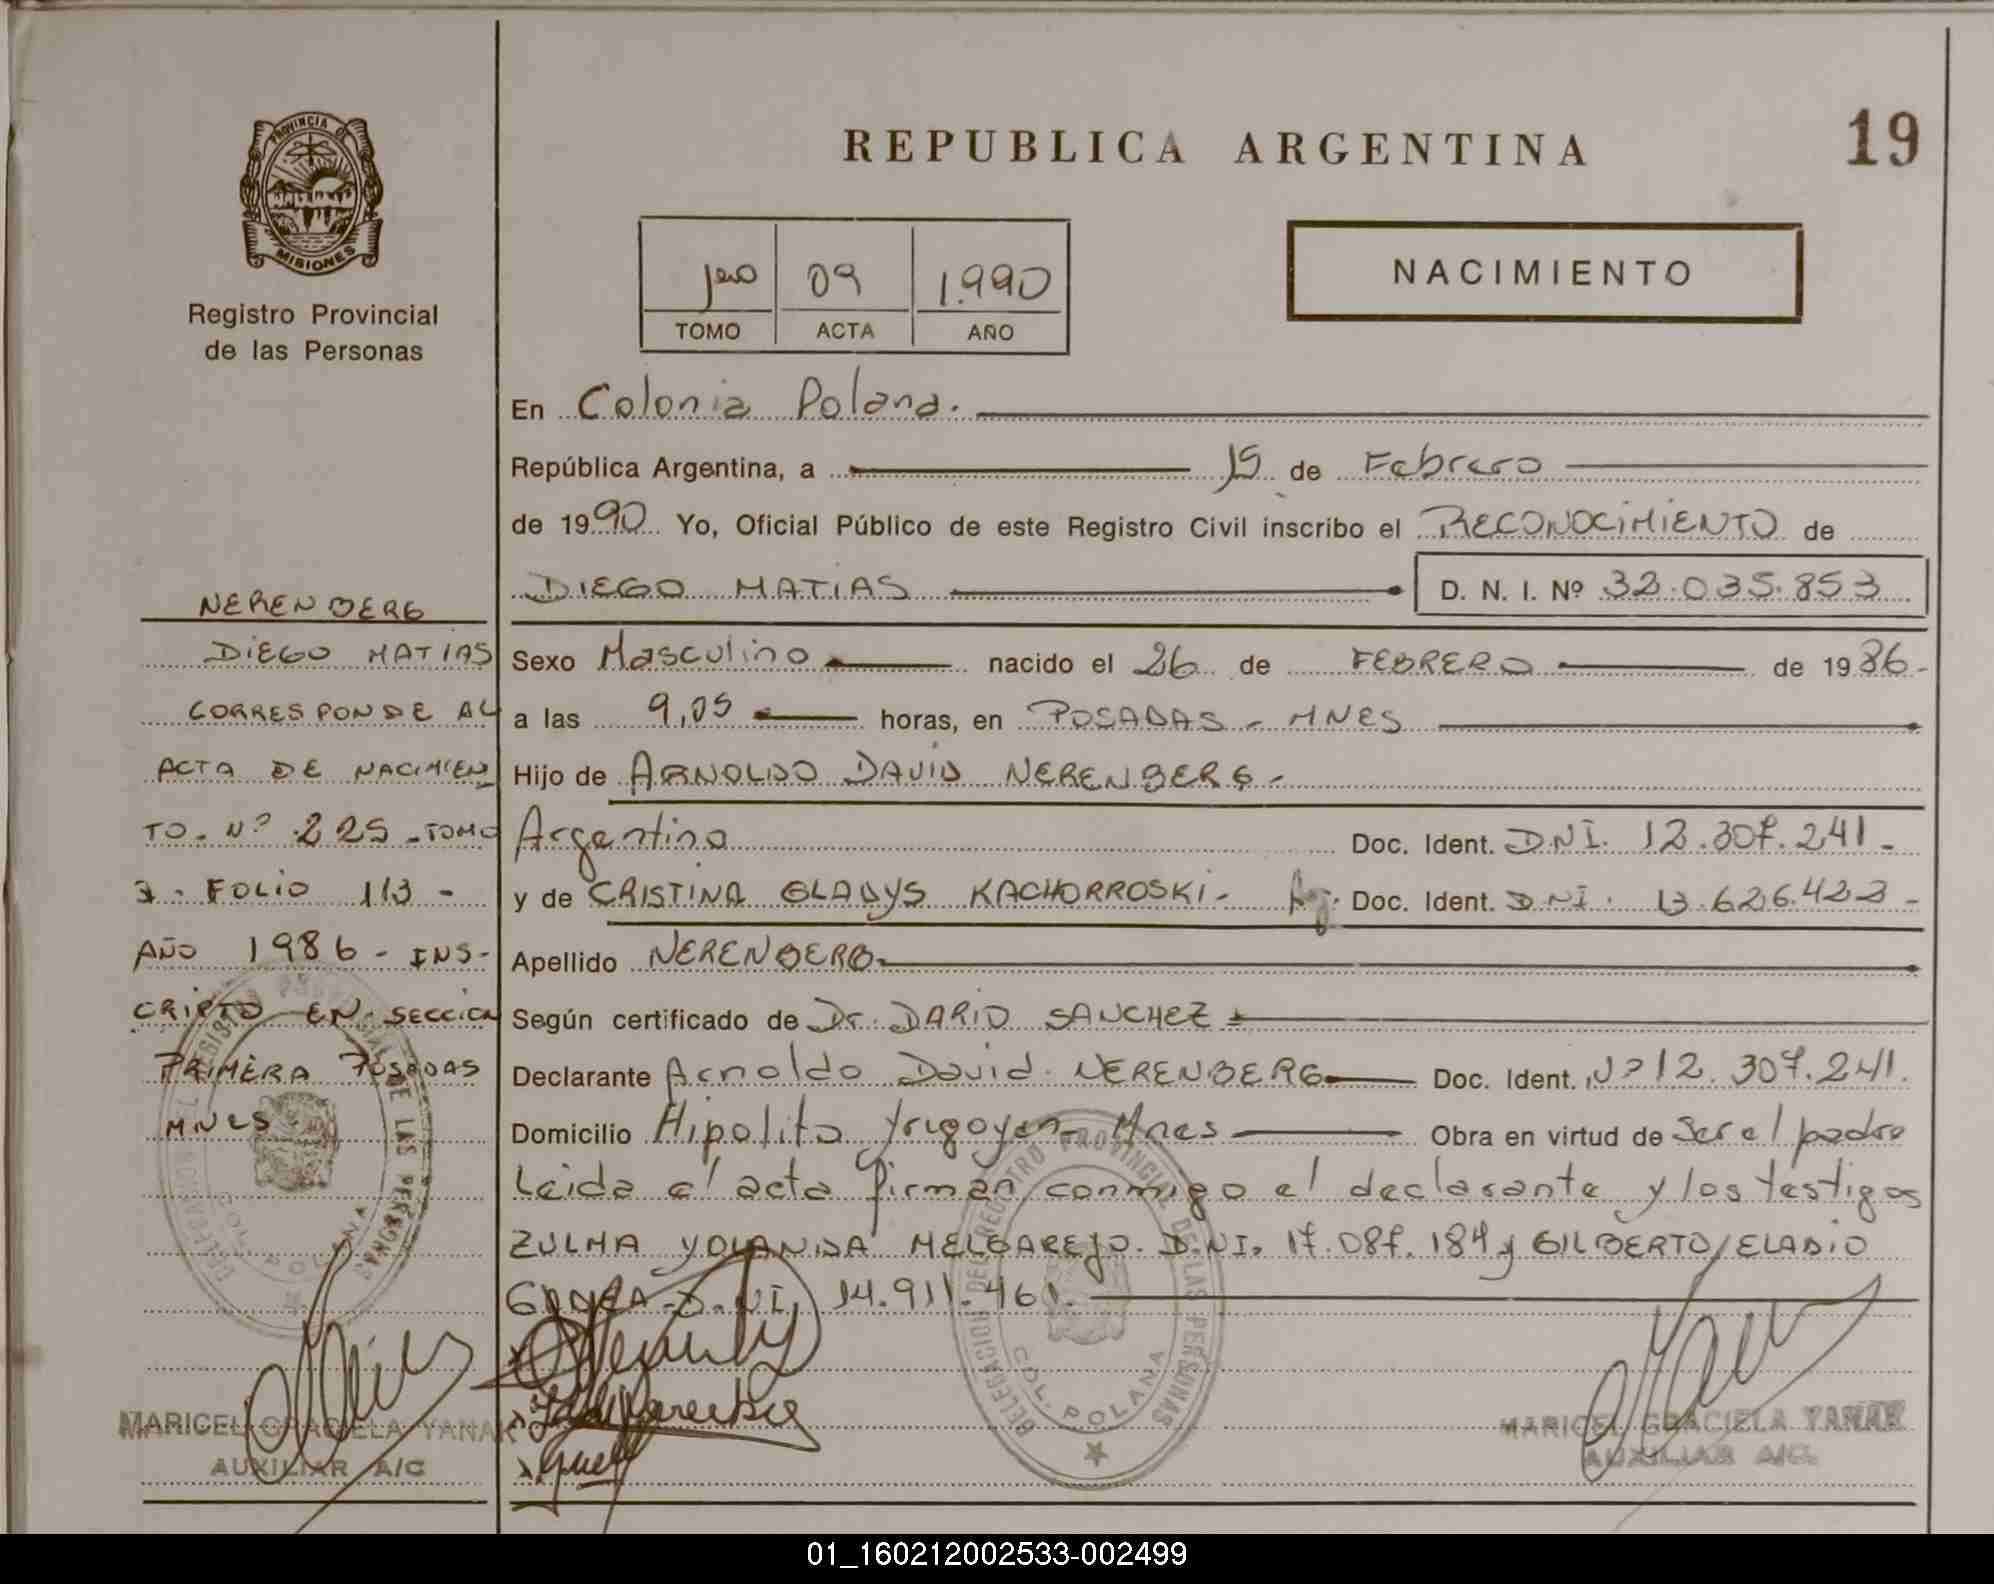 PROVINCIA DE
MISIONES
Registro Provincial
de las Personas
REPUBLICA ARGENTINA
19
1ero 09 1.990
TOMO ACTA AÑO
NACIMIENTO
En Colonia Polana.
República Argentina, a 15 de Febrero
de 1990 Yo, Oficial Público de este Registro Civil inscribo el RECONOCIMIENTO de
DIEGO MATIAS D. N. I. Nº 32.035.853
Sexo Masculino nacido el 26 de FEBRERO de 1986-
a las 9,05 horas, en POSADAS - MNES
Hijo de ARNOLDO DAVID NERENBERG-
Argentino Doc. Ident. D.N.I. 12.307.241-
y de CRISTINA GLADYS KACHORROSKI- Arg. Doc. Ident. D.N.I. 13.626.423-
Apellido NERENBERG
Según certificado de Dr. DARIO SANCHEZ
Declarante Arnoldo David NERENBERG Doc. Ident. Nº 12.307.241.
Domicilio Hipolito Yrigoyen- Mnes Obra en virtud de Ser el padre
Leida el acta firman conmigo el declarante y los testigos
ZULMA YOLANDA MELGAREJO. D.N.I. 17.087.184 y GILBERTO ELADIO
D.N.I. 14.911.461.
NERENBERG
DIEGO MATIAS
CORRESPONDE AL
ACTA DE NACIMIEN
TO. Nº 225 - TOMO
I - FOLIO 113 -
AÑO 1986 - INS-
CRIPTO EN SECCION
PRIMERA POSADAS
MNES
DELEGACION DEL REGISTRO PROVINCIAL DE LAS PERSONAS
COL. POLANA
DELEGACION DEL REGISTRO PROVINCIAL DE LAS PERSONAS
COL. POLANA
MARICEL GRACIELA YANAK
AUXILIAR A/C
MARICEL GRACIELA YANAK
AUXILIAR A/C
01_160212002533-002499